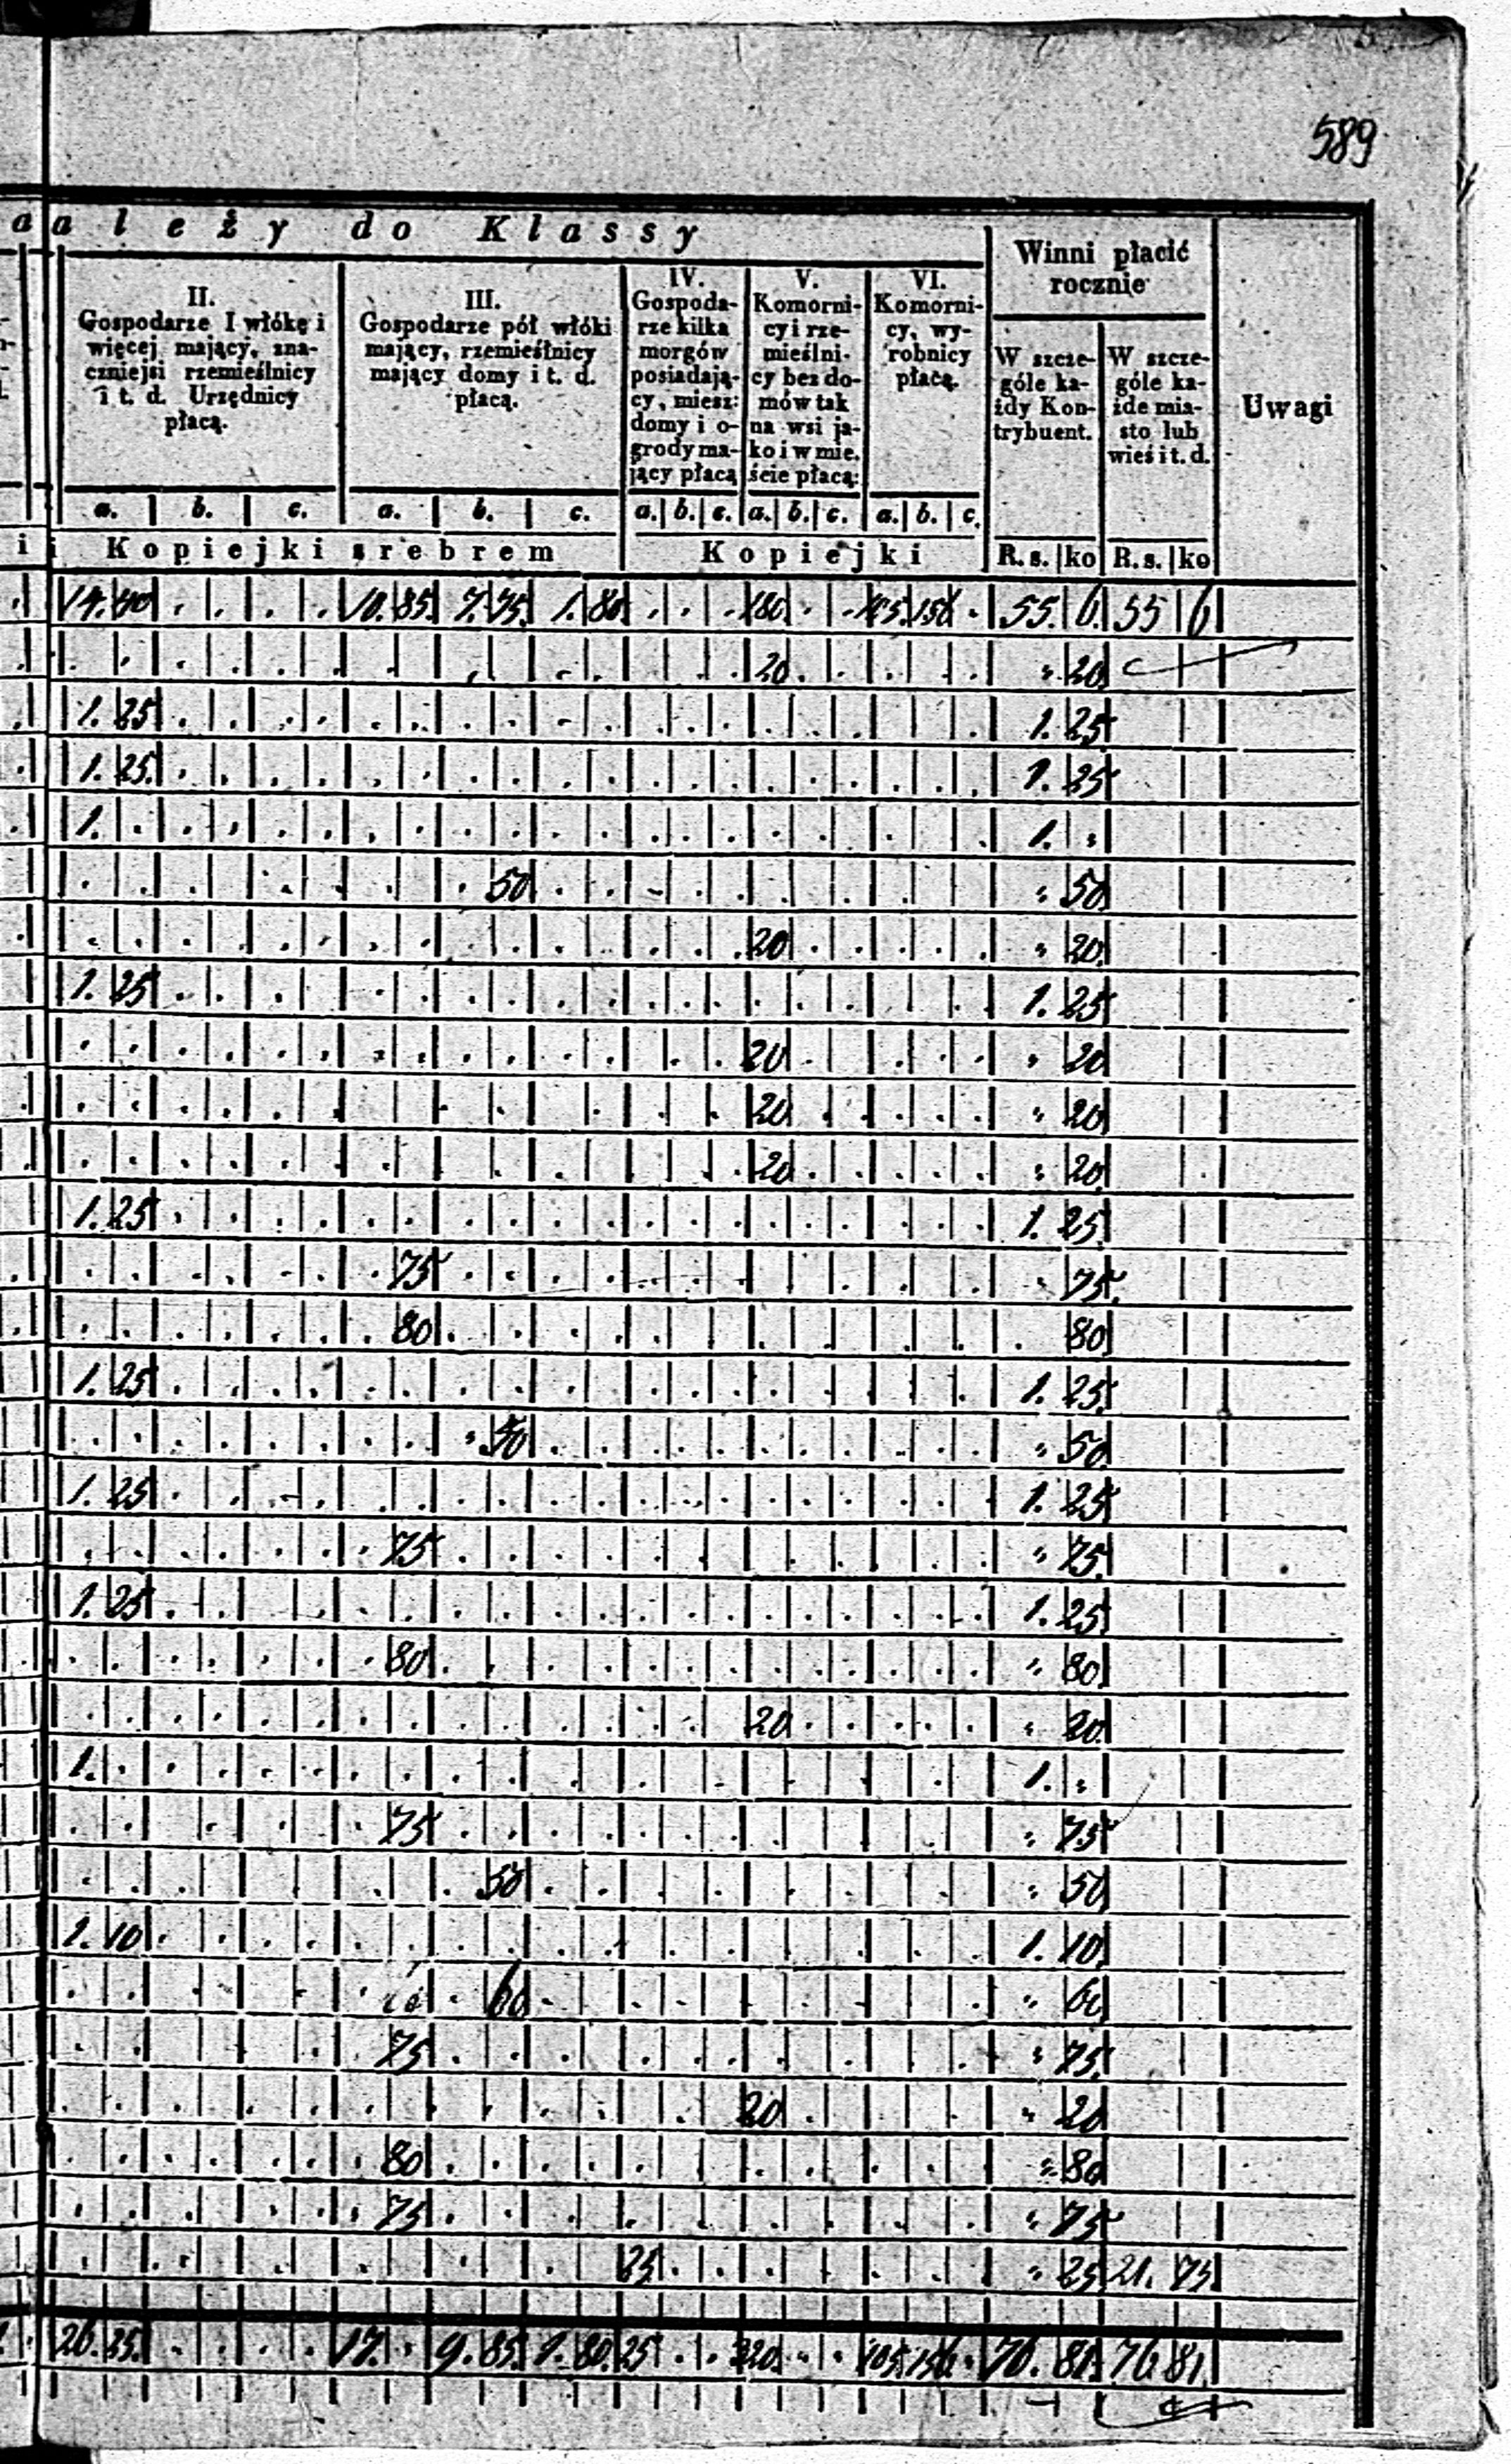 589
należy do Klassy
II.
Gospodarze I włókę i
więcej mający, zna-
czniejsi rzemieślnicy
i t. d. Urzędnicy
płacą.
III.
Gospodarze pół włóki
mający, rzemieślnicy
mający domy i t. d.
płacą.
IV.
Gospoda-
rze kilka
morgów
posiadają-
cy, miesz:
domy i o-
grody ma-
jący płacą
V.
Komorni-
cy i rze-
mieślni-
cy bez do-
mów tak
na wsi ja-
ko i w mie.
ście płacą:
VI.
Komorni-
cy, wy-
robnicy
płacą.
Winni płacić
rocznie
W szcze-
góle ka-
żdy Kon-
trybuent.
W szcze-
góle ka-
żde mia-
sto lub
wieś i t. d.
Uwagi
a. b. c. a. b. c. a. b. c. a. b. c. a. b. c.
Kopiejki srebrem Kopiejki R. s. ko R. s. ko
14. 40 10. 85. 7. 75. 1. 80 180 105 156 55. 6. 55 6
20 " 20
1. 25 1. 25
1. 25. 1. 25
1. 1. "
50 " 50
20 " 20.
1. 25 1. 25
20 " 20
20 " 20
20 " 20
1. 25 1. 25
75 " 75.
80 80
1. 25 1. 25.
50 " 50
1. 25 1. 25
75 " 75.
1. 25 1. 25
80 " 80
20 " 20.
1. 1. "
75 " 75
50 " 50
1. 10 1. 10
60 " 60
75 " 75.
20 " 20
80 " 80
75 " 75
25 " 25 21. 75
26. 25. 17. 9. 85. 1. 80. 25 320 105 156 76. 81. 76 81.